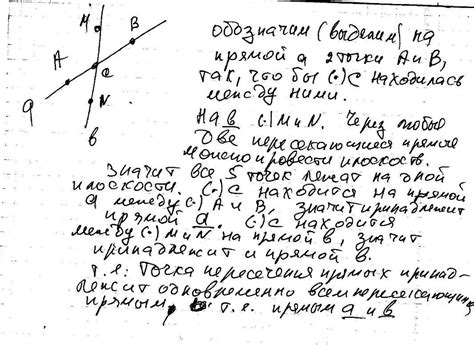 M
B
A
C
N
a
в
обозначим (выделим) на
прямой a 2 точки A и B,
так, что бы (·) C находилась
между ними.
На в (·) M и N. Через любые
две пересекающиеся прямые
можно провести плоскость.
Значит все 5 точек лежат на одной
плоскости. (·) C находится на прямой
a между (·) A и B, значит принадлежит
прямой a. (·) C находится
между (·) M и N на прямой в, значит
принадлежит и прямой в.
т.е. точка пересечения прямых принад-
лежит одновременно всем пересекающимся
прямым, т.е. прямым a и в